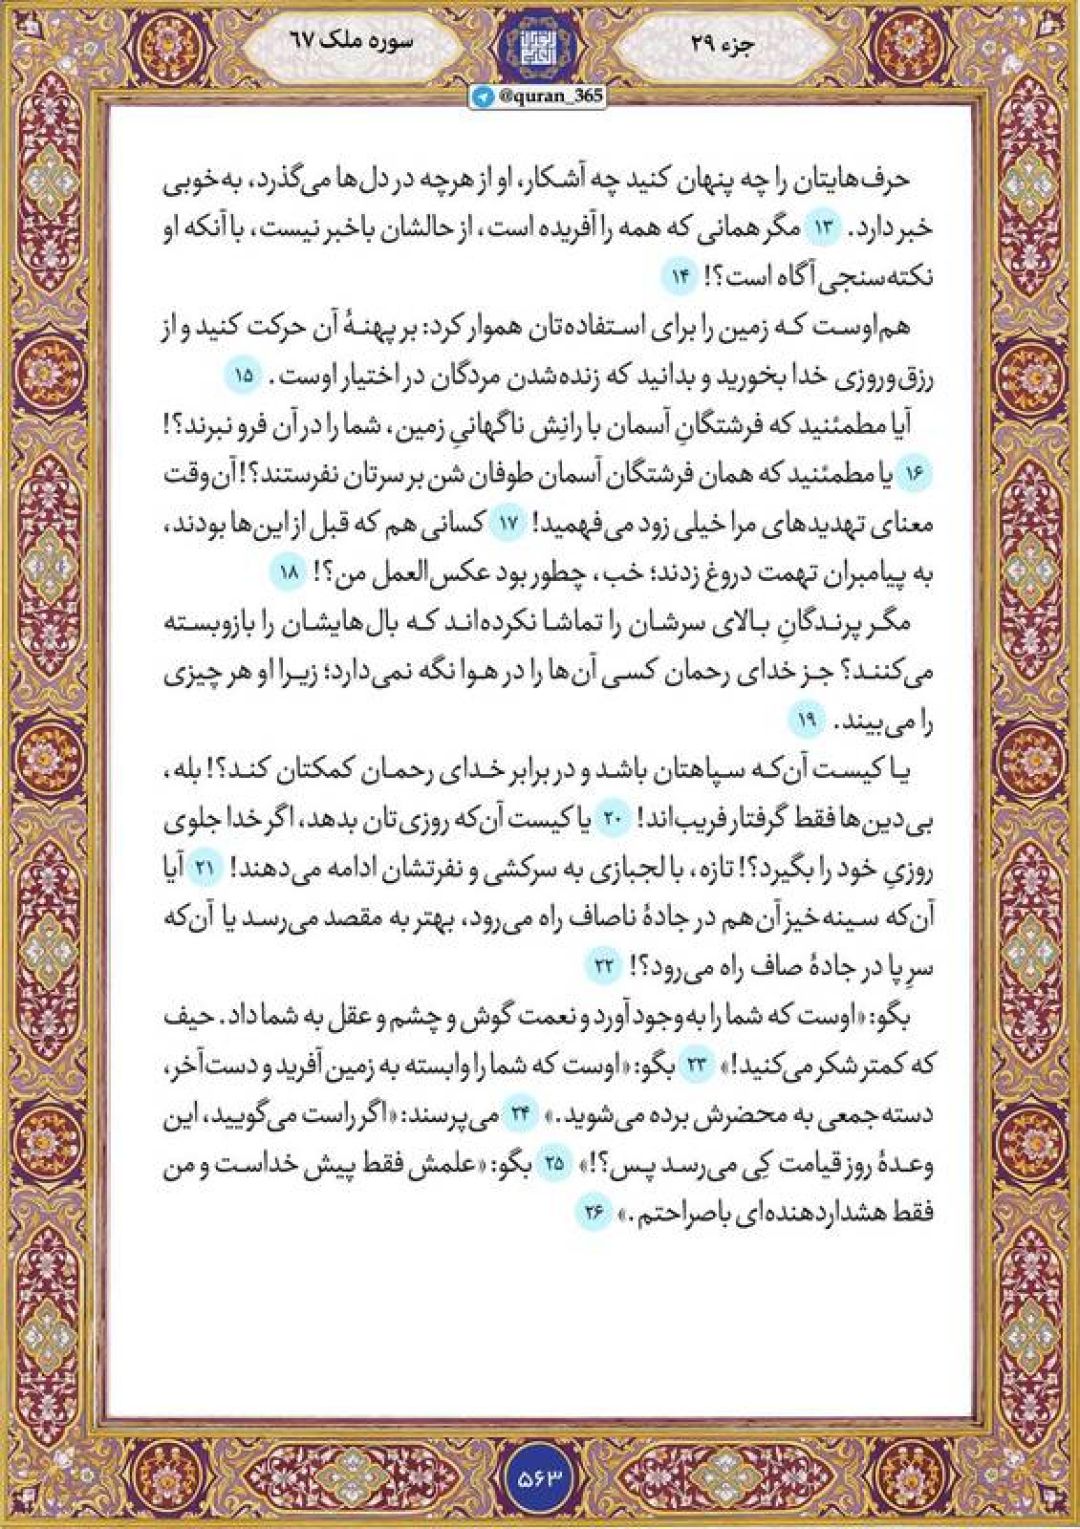 جزء ۲۹
سوره ملک ۶۷
@quran_365
حرف‌هایتان را چه پنهان کنید چه آشکار، او از هرچه در دل‌ها می‌گذرد، به‌خوبی
خبر دارد. ۱۳ مگر همانی که همه را آفریده است، از حالشان باخبر نیست، با آنکه او
نکته‌سنجی آگاه است؟! ۱۴
هم‌اوست که زمین را برای استفاده‌تان هموار کرد: بر پهنۀ آن حرکت کنید و از
رزق‌وروزی خدا بخورید و بدانید که زنده‌شدن مردگان در اختیار اوست. ۱۵
آیا مطمئنید که فرشتگانِ آسمان با رانِش ناگهانیِ زمین، شما را در آن فرو نبرند؟!
۱۶ یا مطمئنید که همان فرشتگان آسمان طوفان شن بر سرتان نفرستند؟! آن‌وقت
معنای تهدیدهای مرا خیلی زود می‌فهمید! ۱۷ کسانی هم که قبل از این‌ها بودند،
به پیامبران تهمت دروغ زدند؛ خب، چطور بود عکس‌العمل من؟! ۱۸
مگر پرندگانِ بالای سرشان را تماشا نکرده‌اند که بال‌هایشان را بازوبسته
می‌کنند؟ جز خدای رحمان کسی آن‌ها را در هوا نگه نمی‌دارد؛ زیرا او هر چیزی
را می‌بیند. ۱۹
یا کیست آن‌که سپاهتان باشد و در برابر خدای رحمان کمکتان کند؟! بله،
بی‌دین‌ها فقط گرفتار فریب‌اند! ۲۰ یا کیست آن‌که روزی‌تان بدهد، اگر خدا جلوی
روزیِ خود را بگیرد؟! تازه، با لجبازی به سرکشی و نفرتشان ادامه می‌دهند! ۲۱ آیا
آن‌که سینه‌خیز آن‌هم در جادۀ ناصاف راه می‌رود، بهتر به مقصد می‌رسد یا آن‌که
سرِپا در جادۀ صاف راه می‌رود؟! ۲۲
بگو: «اوست که شما را به‌وجود آورد و نعمت گوش و چشم و عقل به شما داد. حیف
که کمتر شکر می‌کنید!» ۲۳ بگو: «اوست که شما را وابسته به زمین آفرید و دست‌آخر،
دسته‌جمعی به محضرش برده می‌شوید.» ۲۴ می‌پرسند: «اگر راست می‌گویید، این
وعدۀ روز قیامت کِی می‌رسد پس؟!» ۲۵ بگو: «علمش فقط پیش خداست و من
فقط هشداردهنده‌ای باصراحتم.» ۲۶
۵۶۳